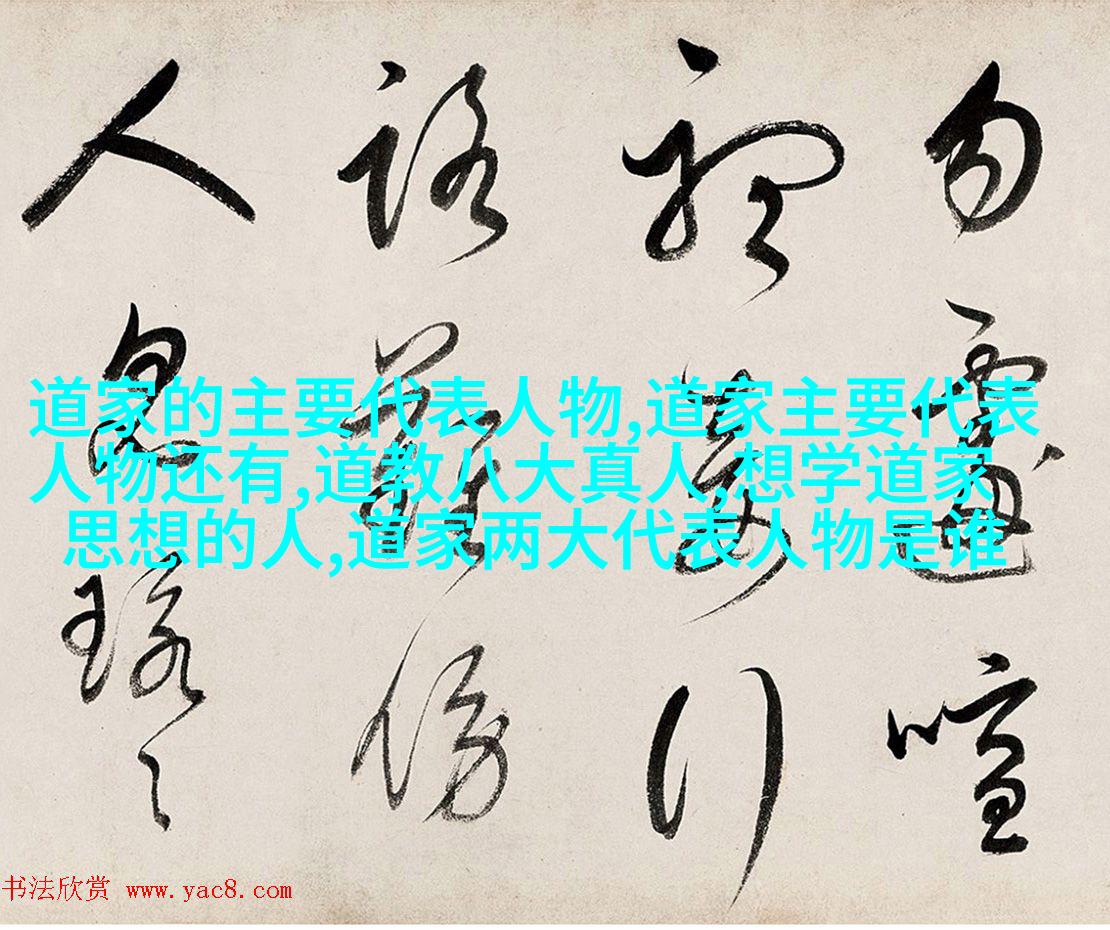 勿 喧
行
路難傍
人
道家的主要代表人物,道家主要代表
人物还有,道教八大真人,想学道家
思想的人,道家两大代表人物是谁
书法欣赏 www.yac8.com